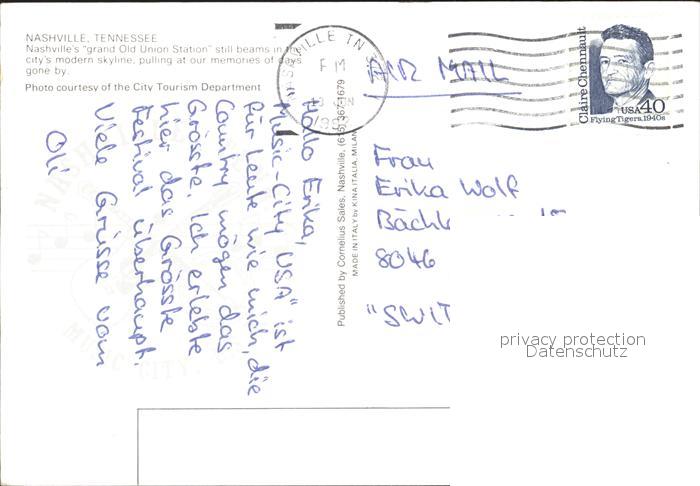 NASHVILLE, TENNESSEE
Nashville's "grand Old Union Station" still beams in the
city's modern skyline, pulling at our memories of days
gone by.
Photo courtesy of the City Tourism Department
Hallo Erika,
"Music-City USA" ist
für Leute wie mich, die
Country mögen das
Grösste. Ich erlebte
hier das Grösste
Festival überhaupt.
Viele Grüsse vom
Oli
Published by Cornelius Sales, Nashville, (615) 367-1679
MADE IN ITALY by KINA ITALIA, MILAN
NASHVILLE TN
PM
AIR MAIL
Claire Chennault
USA 40
Flying Tigers, 1940s
Frau
Erika Wolf
8046
"SWIT
privacy protection
Datenschutz
MUSIC CITY